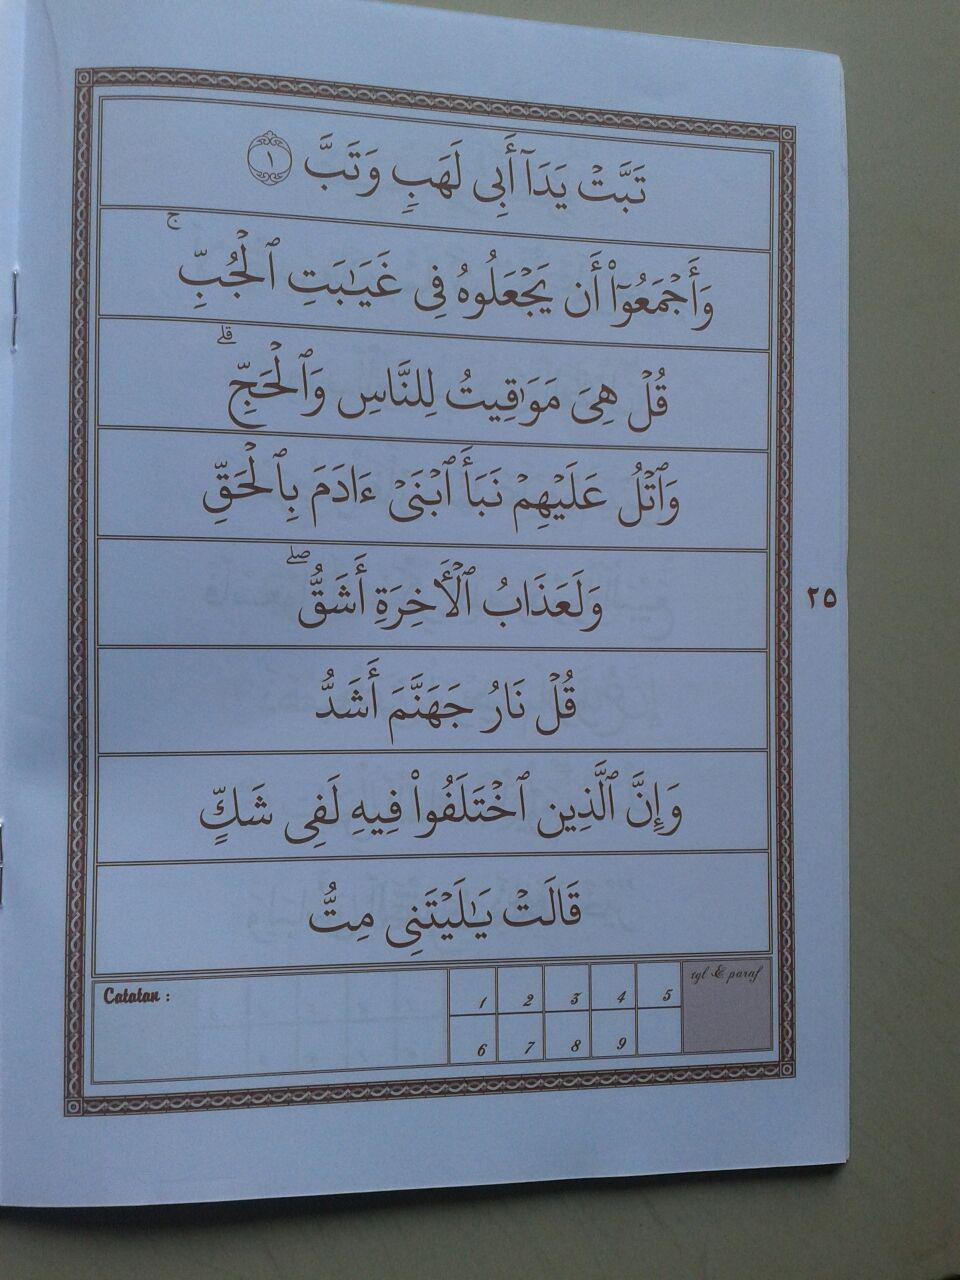 تَبَّتْ يَدَآ أَبِى لَهَبٍ وَتَبَّ ١
وَأَجْمَعُوٓا۟ أَن يَجْعَلُوهُ فِى غَيَـٰبَتِ ٱلْجُبِّ ۚ
قُلْ هِىَ مَوَٰقِيتُ لِلنَّاسِ وَٱلْحَجِّ ۗ
وَٱتْلُ عَلَيْهِمْ نَبَأَ ٱبْنَىْ ءَادَمَ بِٱلْحَقِّ
وَلَعَذَابُ ٱلْأَخِرَةِ أَشَقُّ ۖ
٢٥
قُلْ نَارُ جَهَنَّمَ أَشَدُّ
وَإِنَّ ٱلَّذِين ٱخْتَلَفُوا۟ فِيهِ لَفِى شَكٍّ
قَالَتْ يَـٰلَيْتَنِى مِتُّ
Catatan : 1 2 3 4 5 tgl & paraf
6 7 8 9